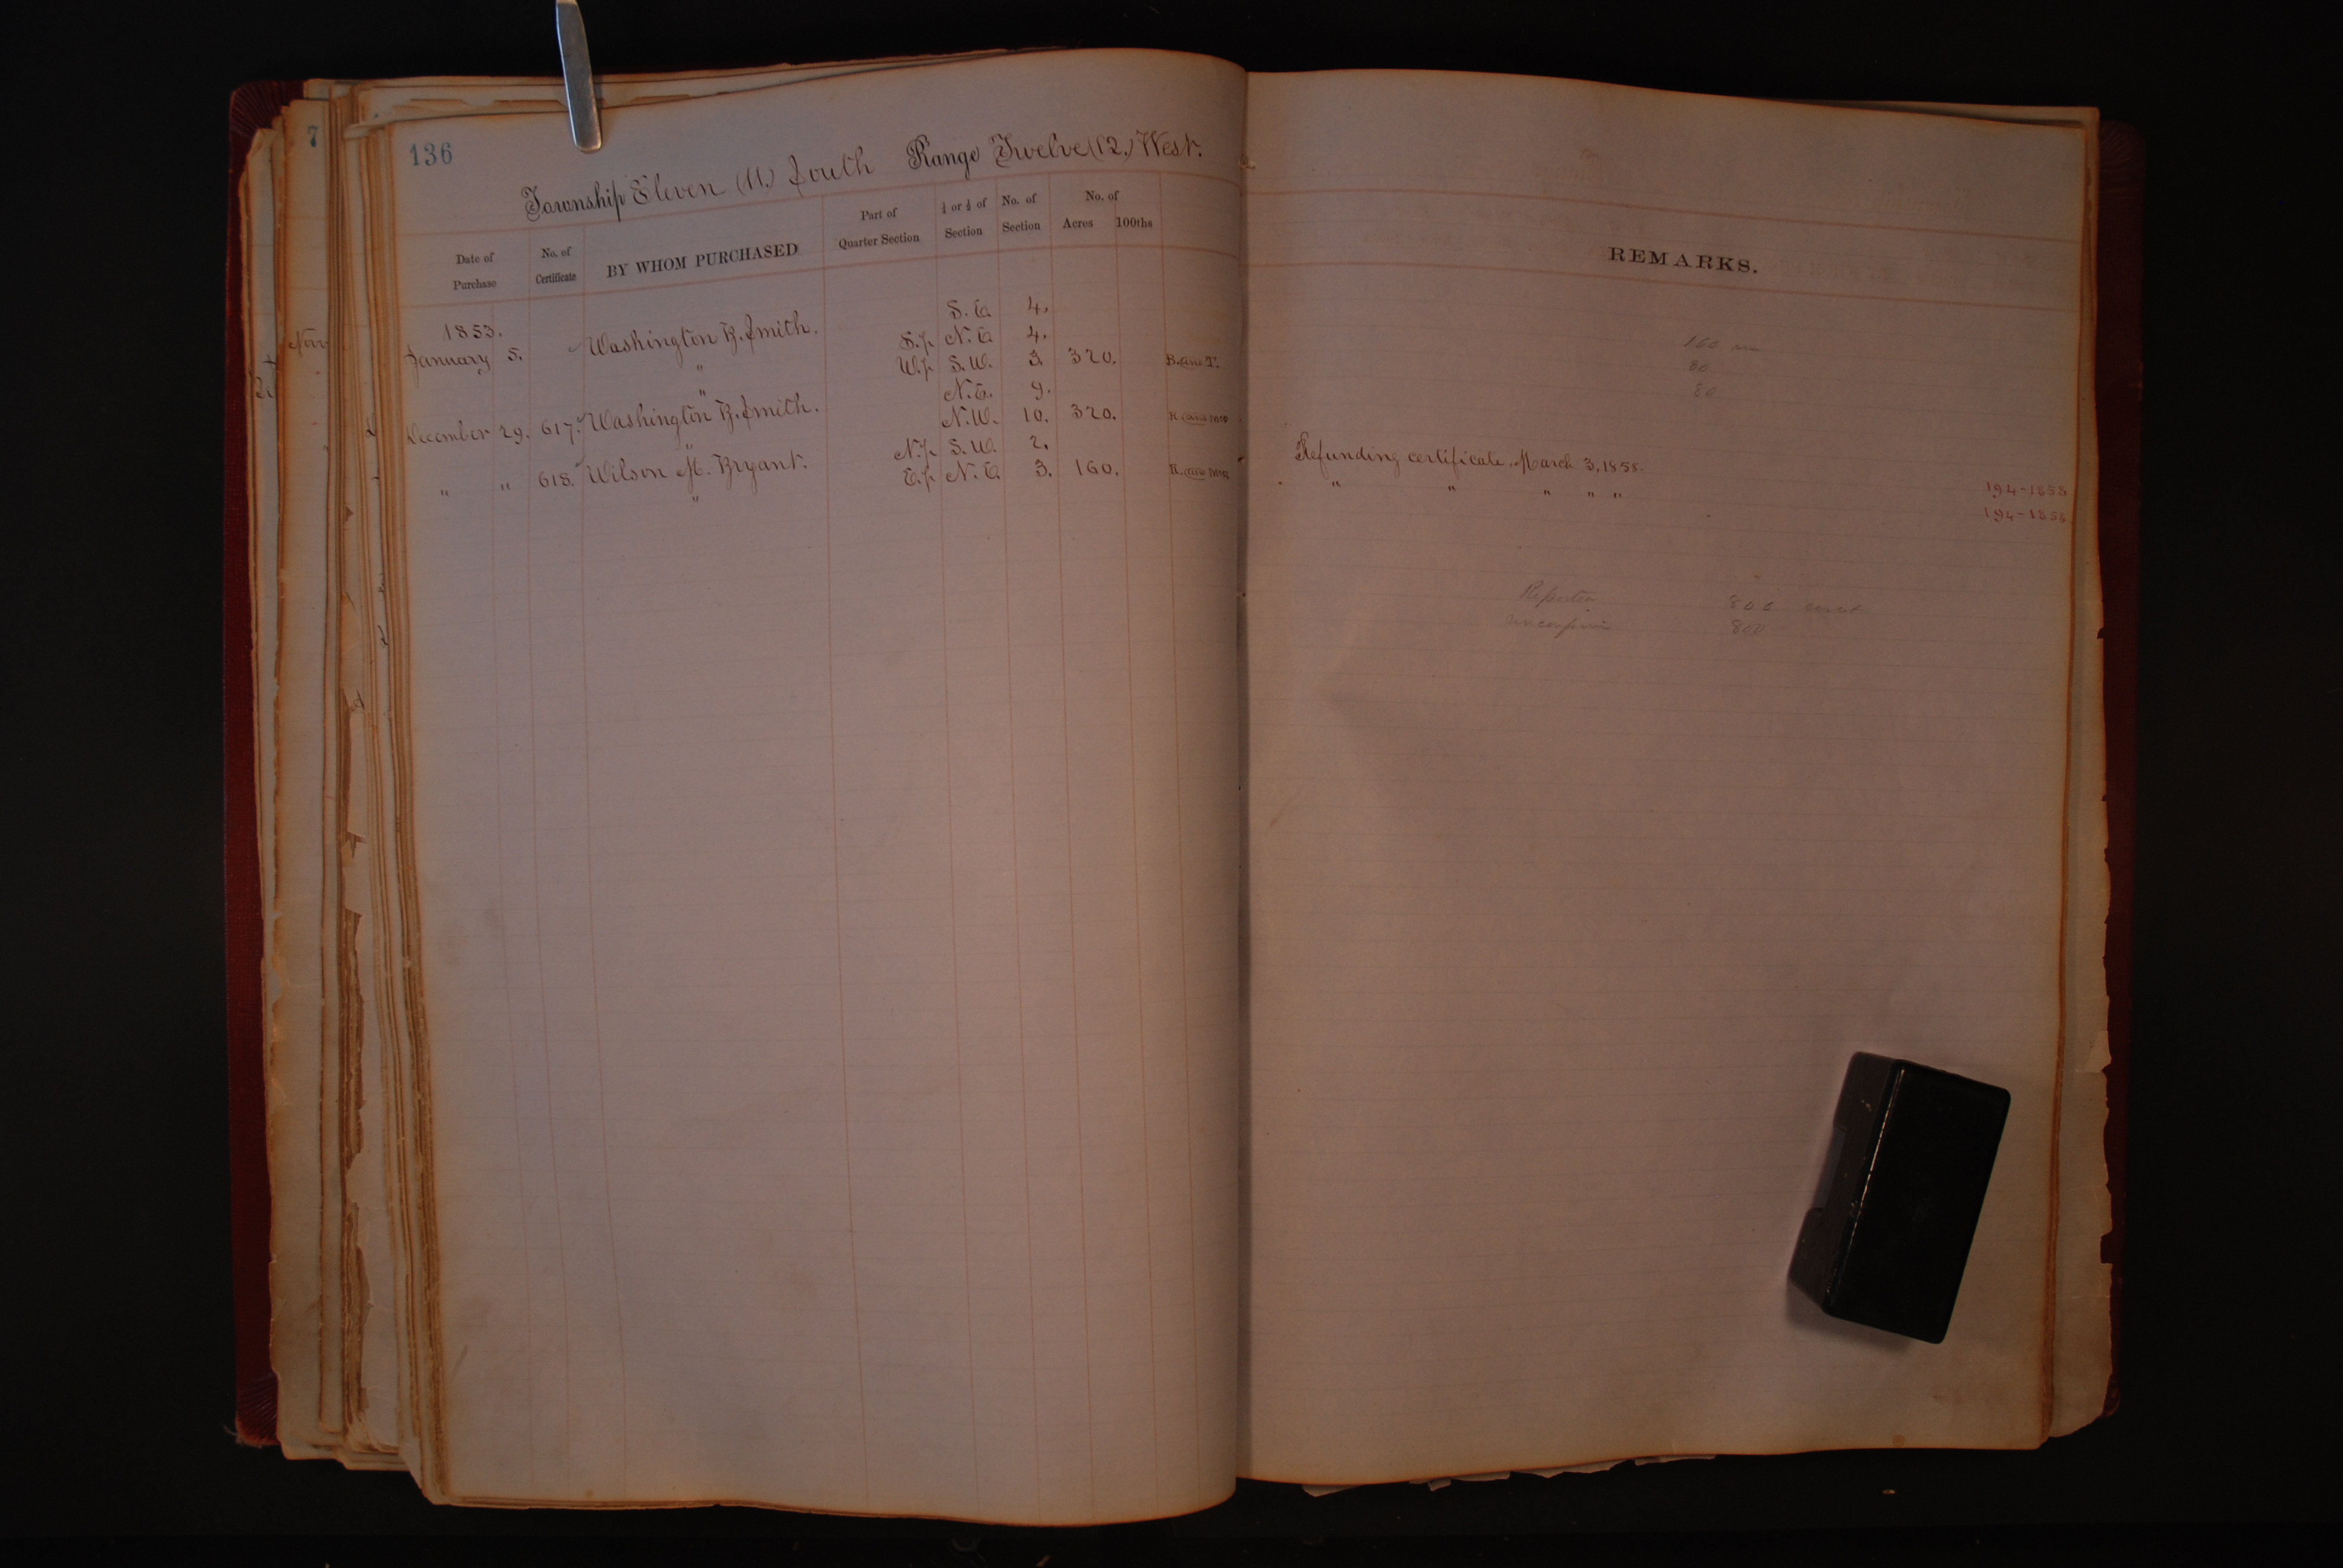 136
Township Eleven (11.) South Range Twelve (12.) West.
Date of Purchase | No. of Certificate | BY WHOM PURCHASED | Part of Quarter Section | ½ or ¼ of Section | No. of Section | No. of Acres | 100ths
REMARKS.
1853.
January 5. Washington B. Smith. S.E. 4.
" S.½ N.E. 4.
" W.½ S.W. 3. 320. B. and T.
December 29. 617. Washington B. Smith. N.E. 9.
" N.W. 10. 320.
" " 618. Wilson M. Bryant. N.½ S.W. 2.
" E.½ N.E. 3. 160.
160
80
80
Refunding certificate, March 3, 1858. 194-1858
" " " " " 194-1858
Reported 800
800
7
Nov